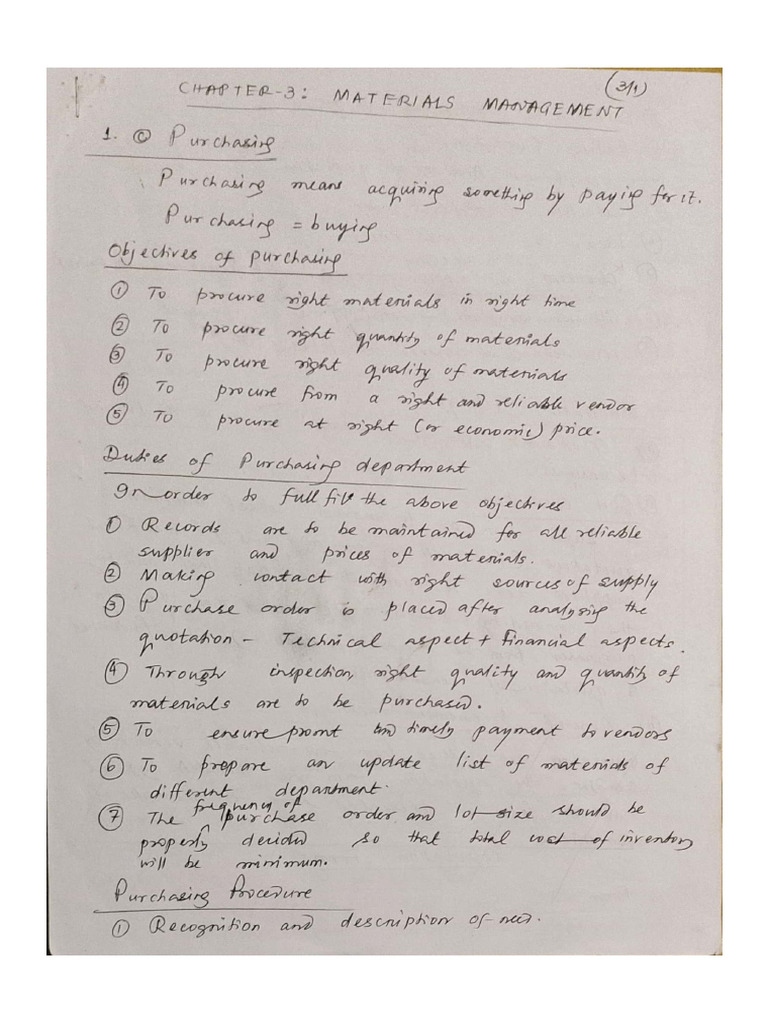 (3/1)
CHAPTER-3: MATERIALS MANAGEMENT
1. © Purchasing
Purchasing means acquiring something by paying for it.
Purchasing = buying
Objectives of purchasing
① To procure right materials in right time
② To procure right quantity of materials
③ To procure right quality of materials
④ To procure from a right and reliable vendor
⑤ To procure at right (or economic) price.
Duties of Purchasing department
In order to full fill the above objectives
① Records are to be maintained for all reliable
supplier and prices of materials.
② Making contact with right sources of supply
③ Purchase order is placed after analysing the
quotation - Technical aspect + Financial aspects.
④ Through inspection, right quality and quantity of
materials are to be purchased.
⑤ To ensure promt and timely payment to vendors
⑥ To prepare an update list of materials of
different department.
⑦ The frequency of purchase order and lot size should be
properly decided so that total cost of inventory
will be minimum.
Purchasing Procedure
① Recognition and description of need.